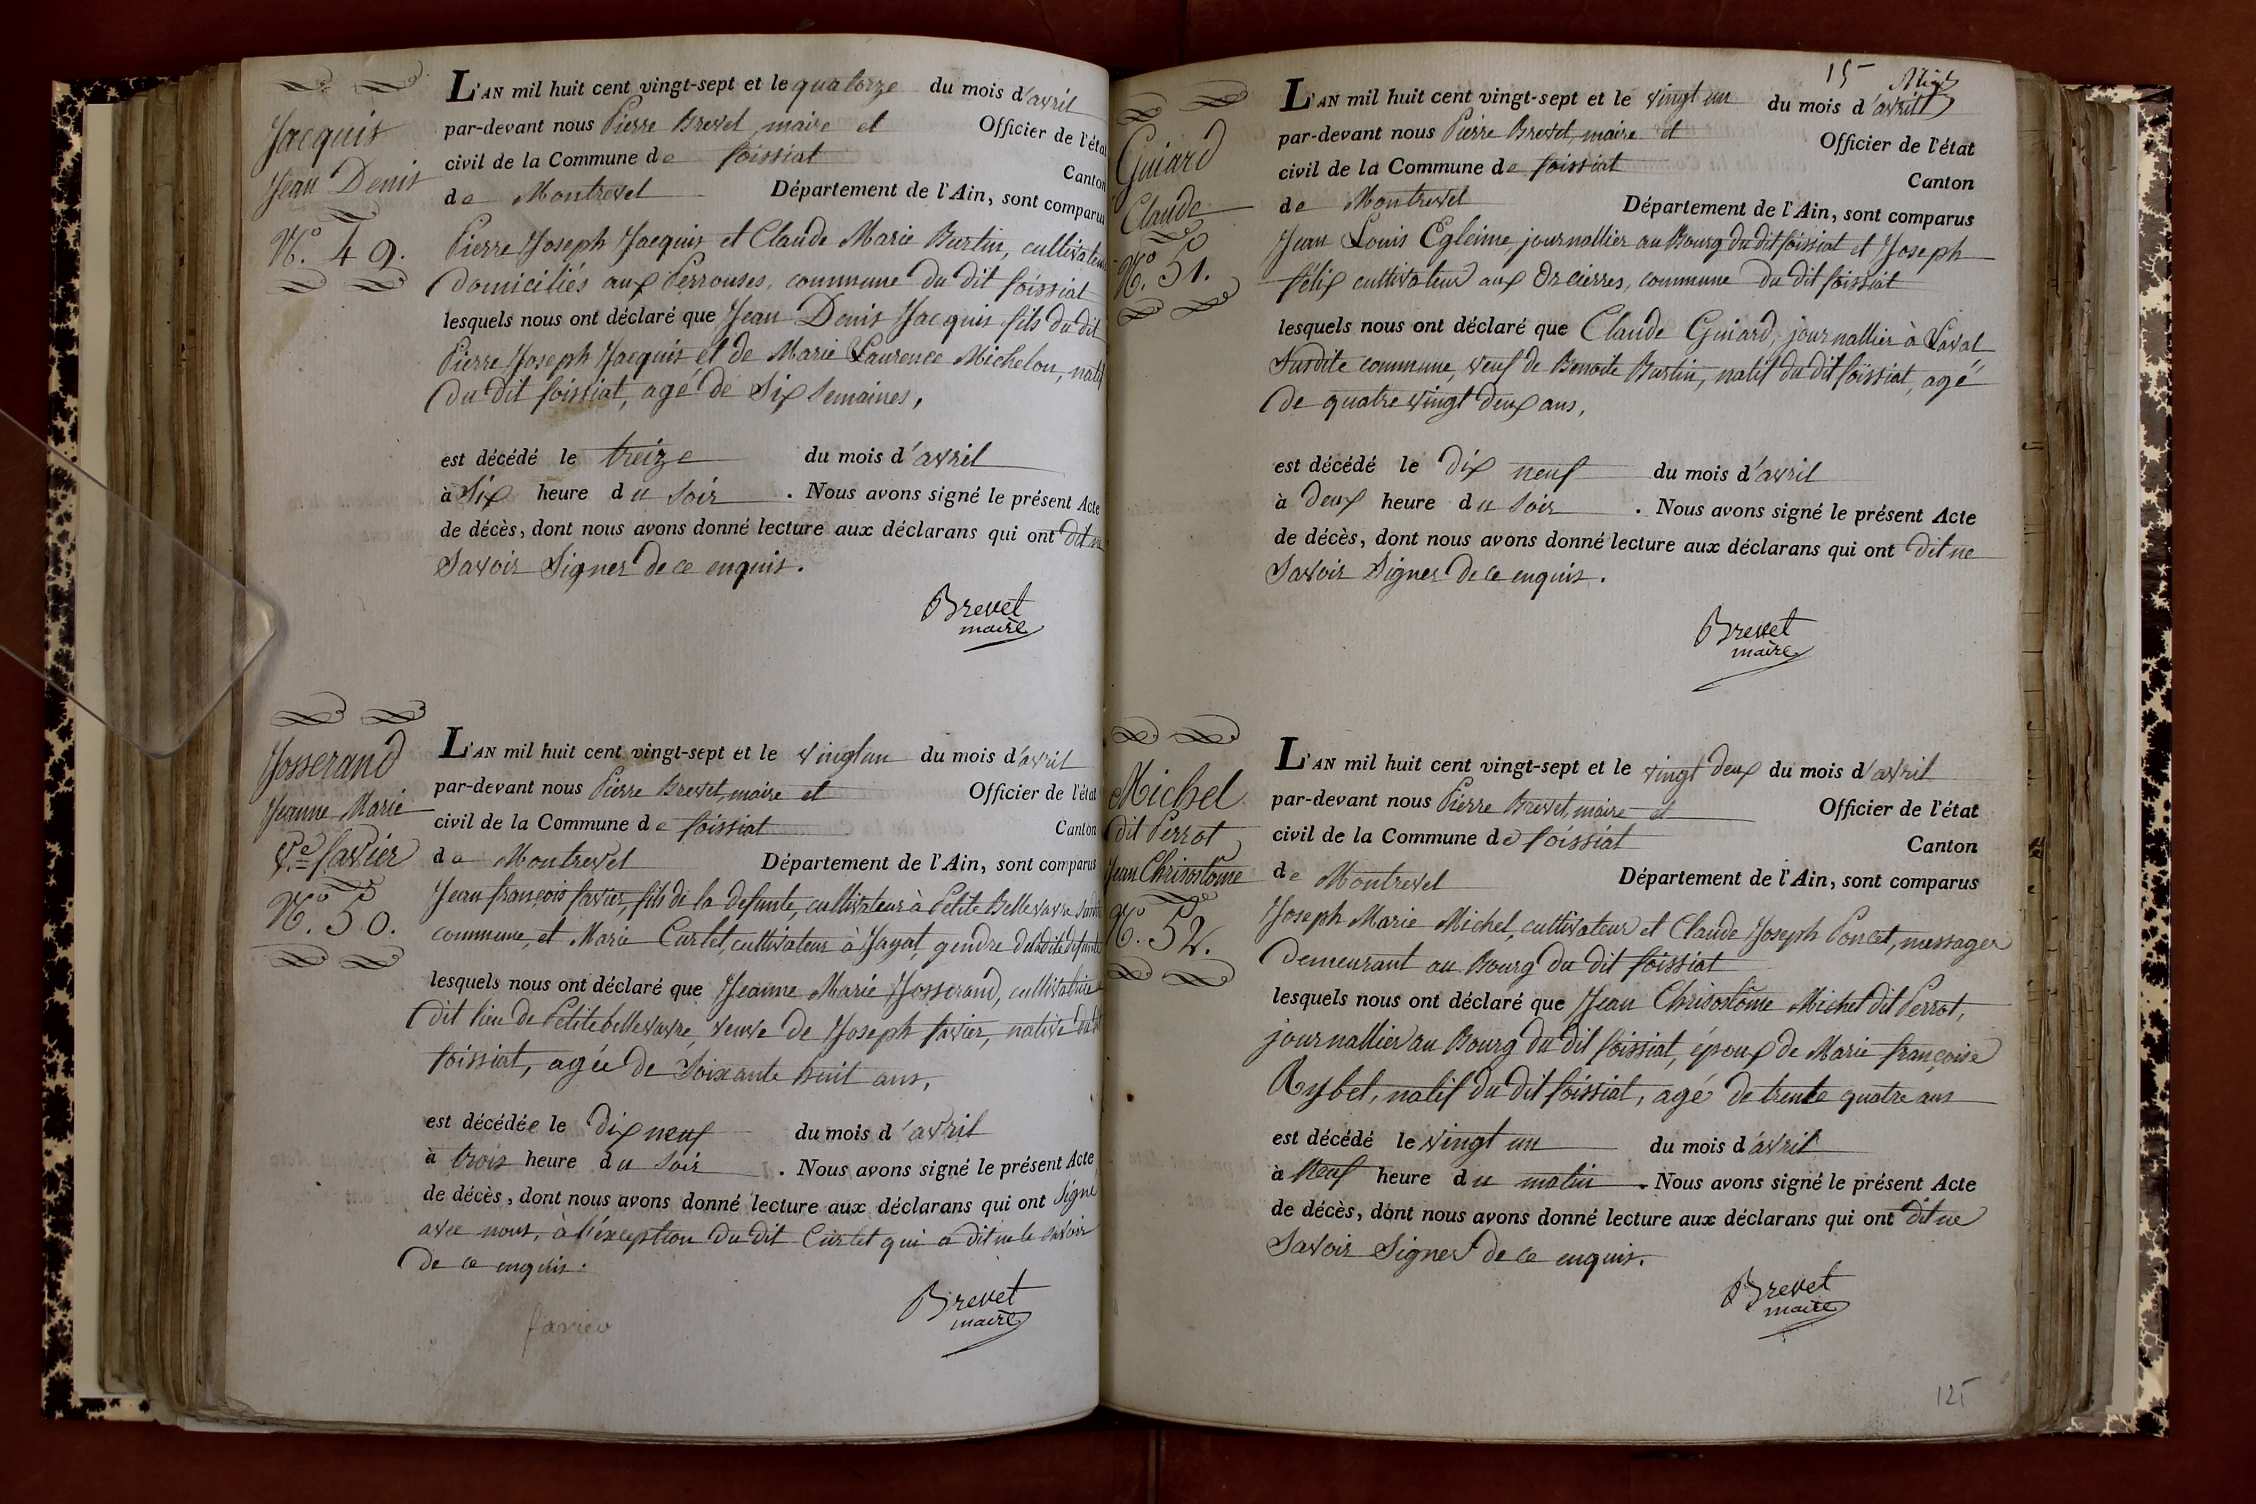 Jacquis
Jean Denis
N.º 49.
L'AN mil huit cent vingt-sept et le quatorze du mois d'avril
par-devant nous Pierre Brevet, maire et Officier de l'état
civil de la Commune de foissiat Canton
de Montrevel Département de l'Ain, sont comparus
Pierre Joseph Jacquis et Claude Marie Burtin, cultivateurs
domiciliés aux Perrouses, commune du dit foissiat
lesquels nous ont déclaré que Jean Denis Jacquis fils du dit
Pierre Joseph Jacquis et de Marie Laurence Michelon, natif
du dit foissiat, agé de Six semaines,
est décédé le treize du mois d'avril
à Six heure du soir . Nous avons signé le présent Acte
de décès, dont nous avons donné lecture aux déclarans qui ont dit ne
Savoir Signer de ce enquis.
Brevet
maire
Josserand
Jeanne Marie
V.e favier
N.º 50.
L'AN mil huit cent vingt-sept et le vingt un du mois d'avril
par-devant nous Pierre Brevet, maire et Officier de l'état
civil de la Commune de foissiat Canton
de Montrevel Département de l'Ain, sont comparus
Jean françois favier, fils de la defunte, cultivateur à Petite Bellevavre
commune, et Marie Curlet, cultivateur à Jayat, gendre de la dite defunte
lesquels nous ont déclaré que Jeanne Marie Josserand, cultivatrice
dit lieu de Petite bellevavre, veuve de Joseph favier, native du dit
foissiat, agée de Soixante huit ans,
est décédée le dix neuf du mois d'avril
à trois heure du soir . Nous avons signé le présent Acte
de décès, dont nous avons donné lecture aux déclarans qui ont signé
avec nous, à l'éxception du dit Curlet qui a dit ne le savoir
de ce enquis.
Brevet
maire
favier
15
Guiard
Claude
N.º 51.
L'AN mil huit cent vingt-sept et le vingt un du mois d'avril
par-devant nous Pierre Brevet, maire et Officier de l'état
civil de la Commune de foissiat Canton
de Montrevel Département de l'Ain, sont comparus
Jean Louis Egleime journallier au Bourg du dit foissiat et Joseph
félix cultivateur aux Orcierres, commune du dit foissiat
lesquels nous ont déclaré que Claude Guiard, journallier à Laval
Susdite commune, veuf de Benoite Burtin, natif du dit foissiat, agé
de quatre vingt deux ans,
est décédé le dix neuf du mois d'avril
à deux heure du soir . Nous avons signé le présent Acte
de décès, dont nous avons donné lecture aux déclarans qui ont dit ne
Savoir Signer de ce enquis.
Brevet
maire
Michel
dit Perrot
Jean Chrisostôme
N.º 52.
L'AN mil huit cent vingt-sept et le vingt deux du mois d'avril
par-devant nous Pierre Brevet, maire et Officier de l'état
civil de la Commune de foissiat Canton
de Montrevel Département de l'Ain, sont comparus
Joseph Marie Michel, cultivateur et Claude Joseph Poncet, messager
demeurant au Bourg du dit foissiat
lesquels nous ont déclaré que Jean Chrisostôme Michel dit Perrot,
journallier au Bourg du dit foissiat, époux de Marie françoise
Rybet, natif du dit foissiat, agé de trente quatre ans
est décédé le vingt un du mois d'avril
à Neuf heure du matin . Nous avons signé le présent Acte
de décès, dont nous avons donné lecture aux déclarans qui ont dit ne
Savoir Signer de ce enquis.
Brevet
maire
125